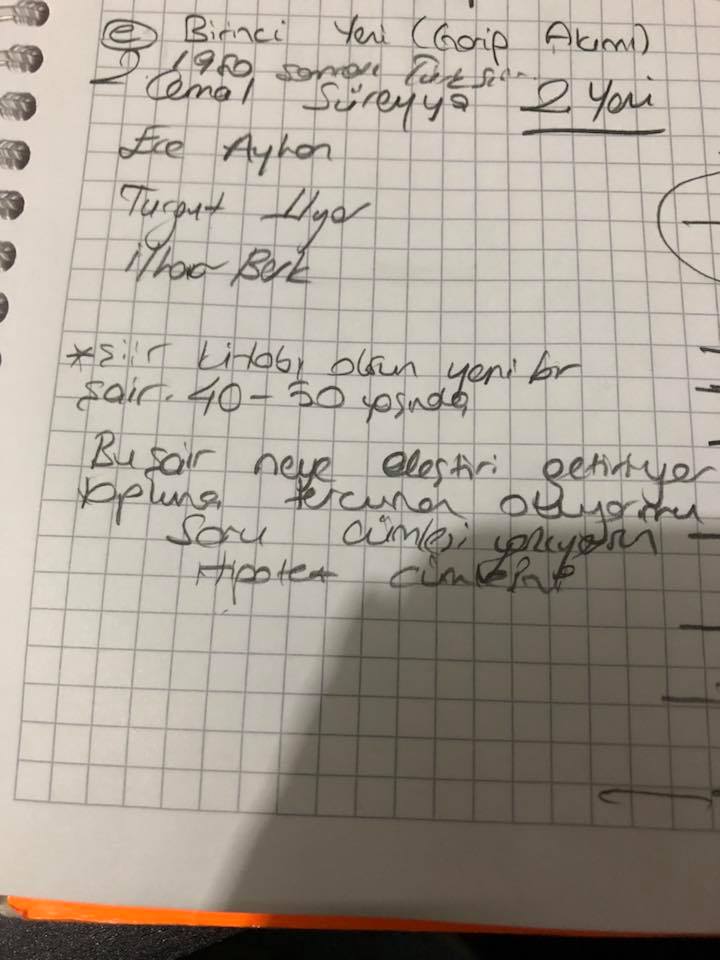 e Birinci Yeni (Garip Akımı)
2 1980 sonrası Türk
Cemal Süreyya 2 Yeni
Ece Ayhan
Turgut Uyar
İlhan Berk
*Şiir kitabı olsun yeni bir
şair. 40-50 yaşında
Bu şair neye eleştiri getiriyor
topluma tercüman oluyor mu
Soru cümlesi yazıyorsun
Hipotez cümlesine